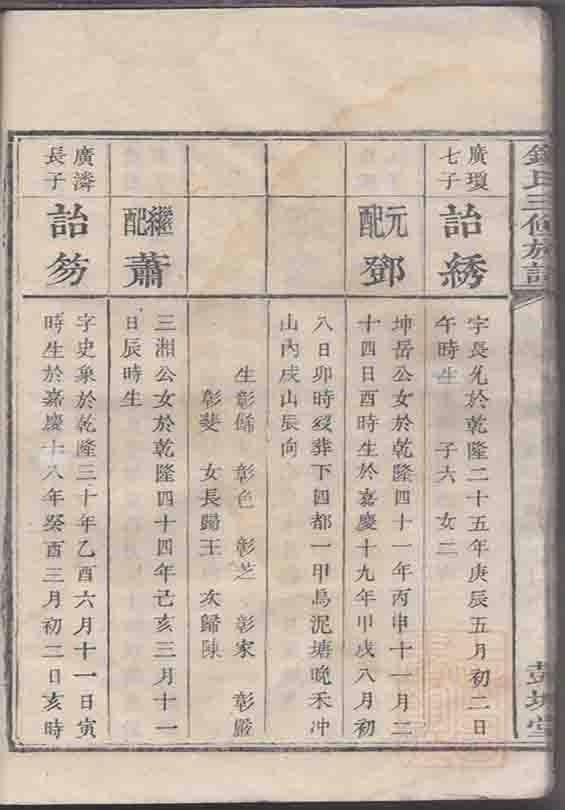 氏三修族譜
彭城堂
廣瓊
七子
詒綉
字長允於乾隆二十五年庚辰五月初二日
午時生 子六 女二
元配
鄧
坤岳公女於乾隆四十一年丙申十一月二
十四日酉時生於嘉慶十九年甲戌八月初
八日卯時歿葬下四都一甲馬泥塘晚禾冲
山內戌山辰向
生彰脩 彰色 彰芝 彰家 彰嚴
彰斐 女長歸王 次歸陳
繼配
蕭
三湘公女於乾隆四十四年己亥三月十一
日辰時生
廣潾
長子
詒芴
字史象於乾隆三十年乙酉六月十一日寅
時生於嘉慶十八年癸酉三月初二日亥時